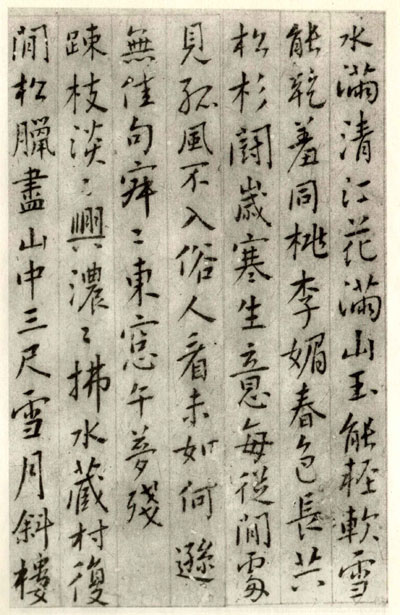 水滿清江花滿山玉能輕軟雪
能乾羞同桃李媚春色長共
松杉鬪歲寒生意每從閒處
見孤風不入俗人看未如何遜
無佳句寂〻東窓午夢殘
踈枝淡〻興濃〻拂水藏村復
間松臘盡山中三尺雪月斜樓